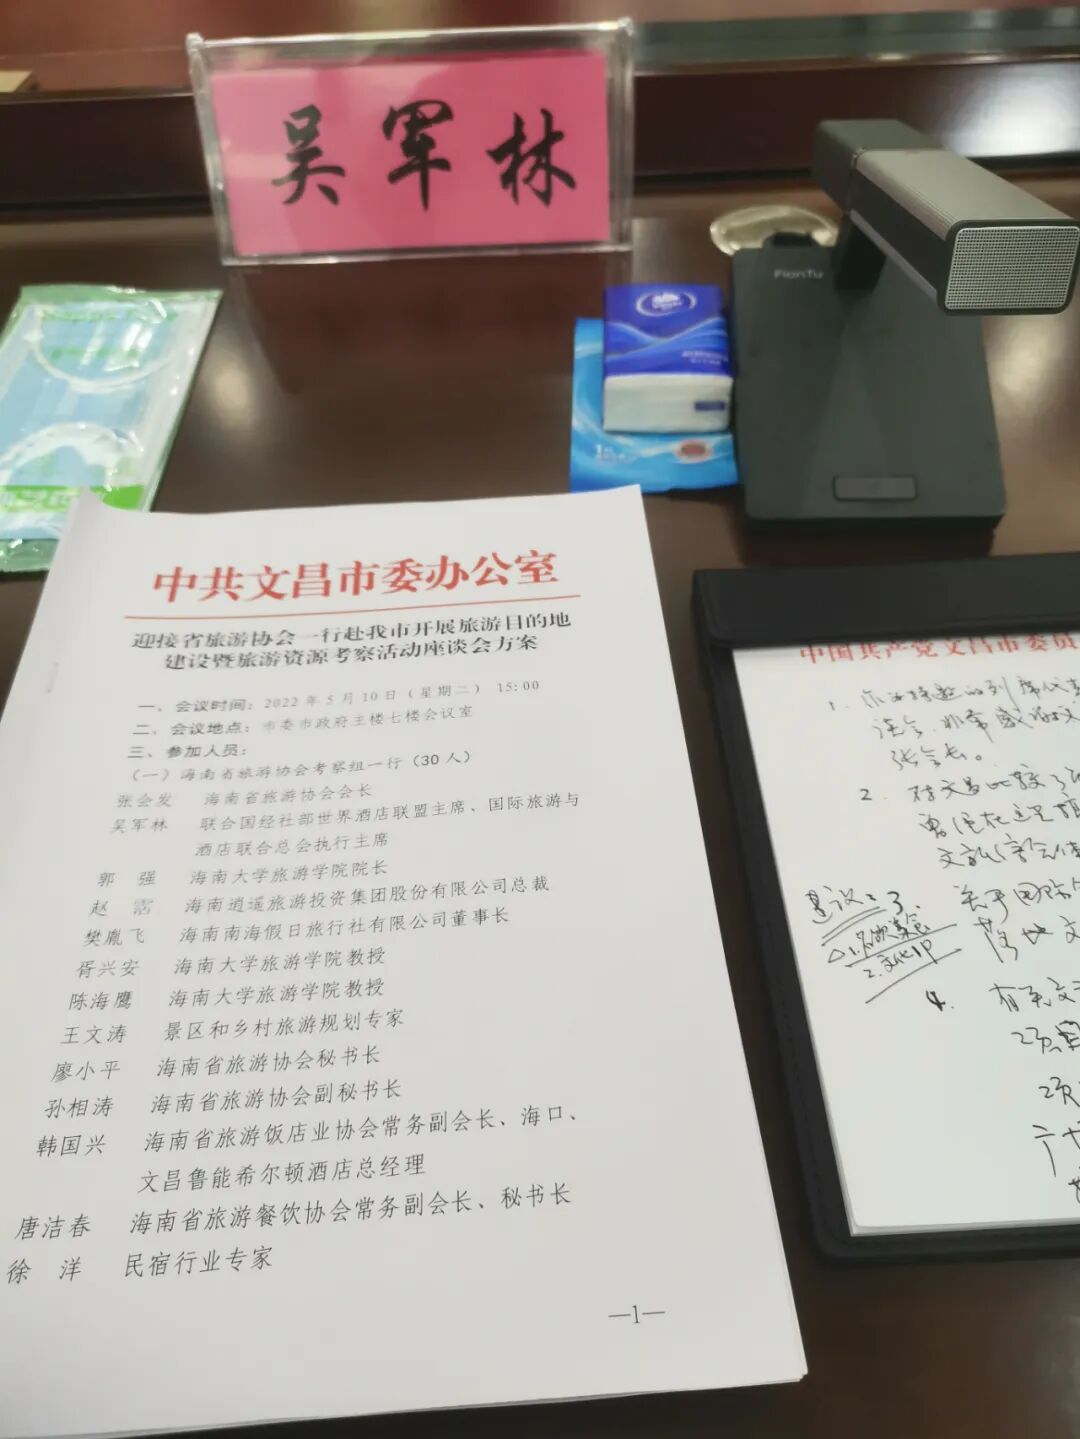 吴军林
FionTu
中共文昌市委办公室
迎接省旅游协会一行赴我市开展旅游目的地
建设暨旅游资源考察活动座谈会方案
一、会议时间：2022年5月10日（星期二） 15:00
二、会议地点：市委市政府主楼七楼会议室
三、参加人员：
（一）海南省旅游协会考察组一行（30人）
张会发 海南省旅游协会会长
吴军林 联合国经社部世界酒店联盟主席、国际旅游与
酒店联合总会执行主席
郭 强 海南大学旅游学院院长
赵 霑 海南逍遥旅游投资集团股份有限公司总裁
樊胤飞 海南南海假日旅行社有限公司董事长
胥兴安 海南大学旅游学院教授
陈海鹰 海南大学旅游学院教授
王文涛 景区和乡村旅游规划专家
廖小平 海南省旅游协会秘书长
孙相涛 海南省旅游协会副秘书长
韩国兴 海南省旅游饭店业协会常务副会长、海口、
文昌鲁能希尔顿酒店总经理
唐洁春 海南省旅游餐饮协会常务副会长、秘书长
徐 洋 民宿行业专家
—1—
中国共产党文昌市委员
1.
张会长。
2. 对文昌比较了
建议：3. 关于国际
落地文
2. 文化IP
4. 有关文